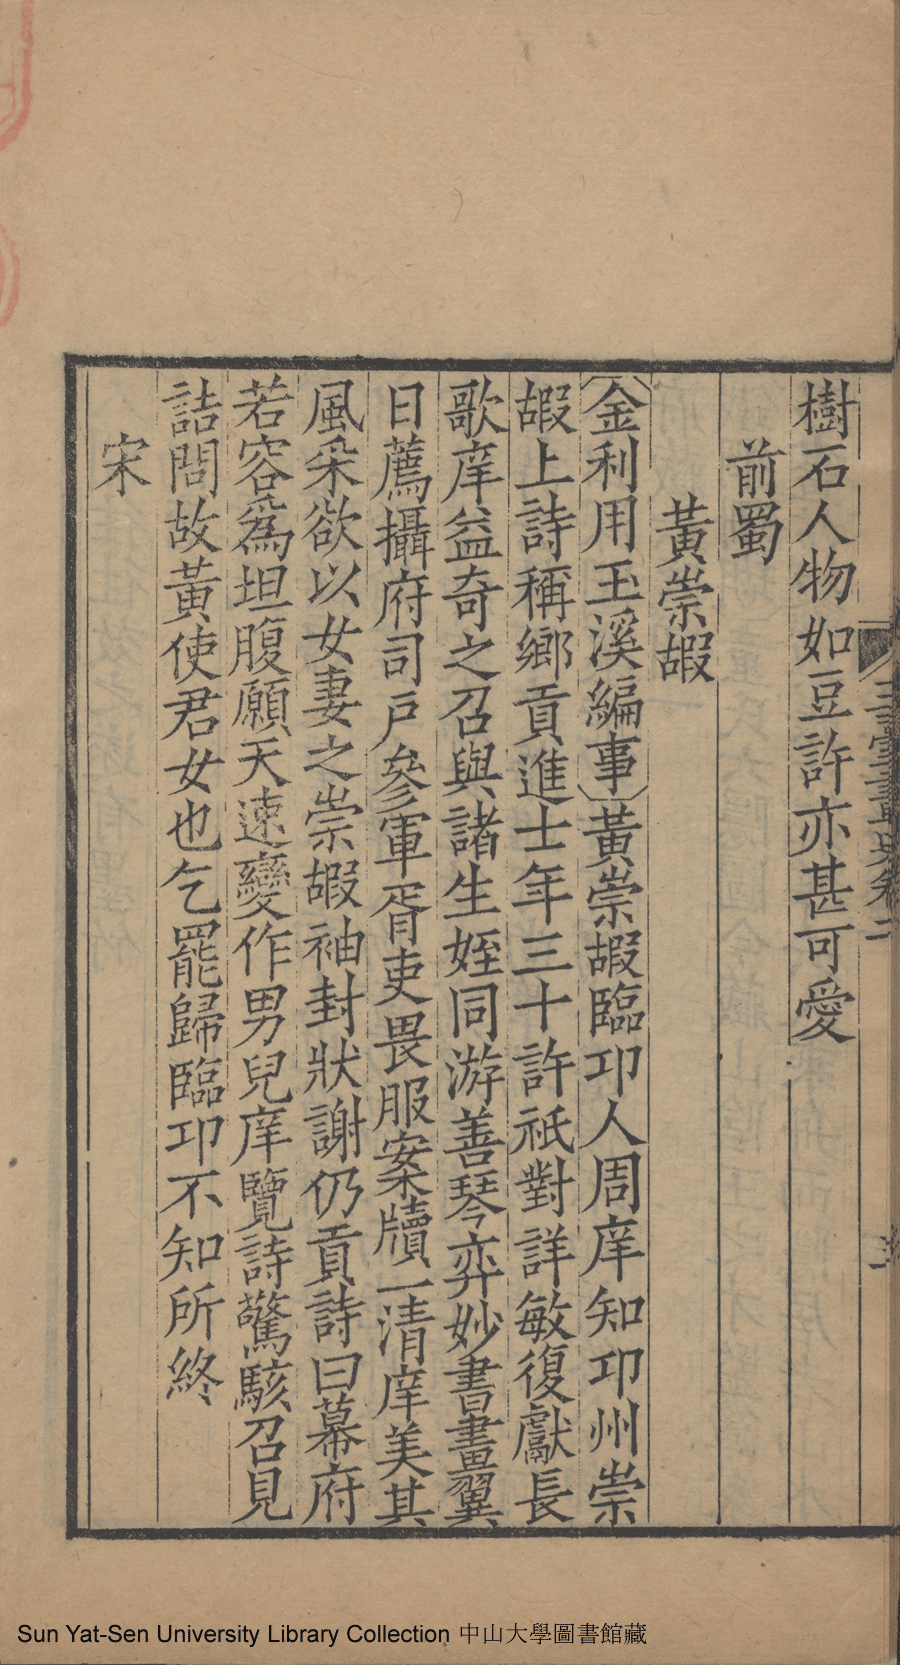 樹石人物如豆許亦甚可愛
前蜀
黃崇嘏
〔金利用玉溪編事〕黃崇嘏臨邛人周庠知邛州崇
嘏上詩稱鄉貢進士年三十許祇對詳敏復獻長
歌庠益奇之召與諸生姪同游善琴弈妙書畫翼
日薦攝府司戶參軍胥吏畏服案牘一清庠美其
風采欲以女妻之崇嘏袖封狀謝仍貢詩曰幕府
若容爲坦腹願天速變作男兒庠覽詩驚駭召見
詰問故黃使君女也乞罷歸臨邛不知所終
宋
Sun Yat-Sen University Library Collection 中山大學圖書館藏